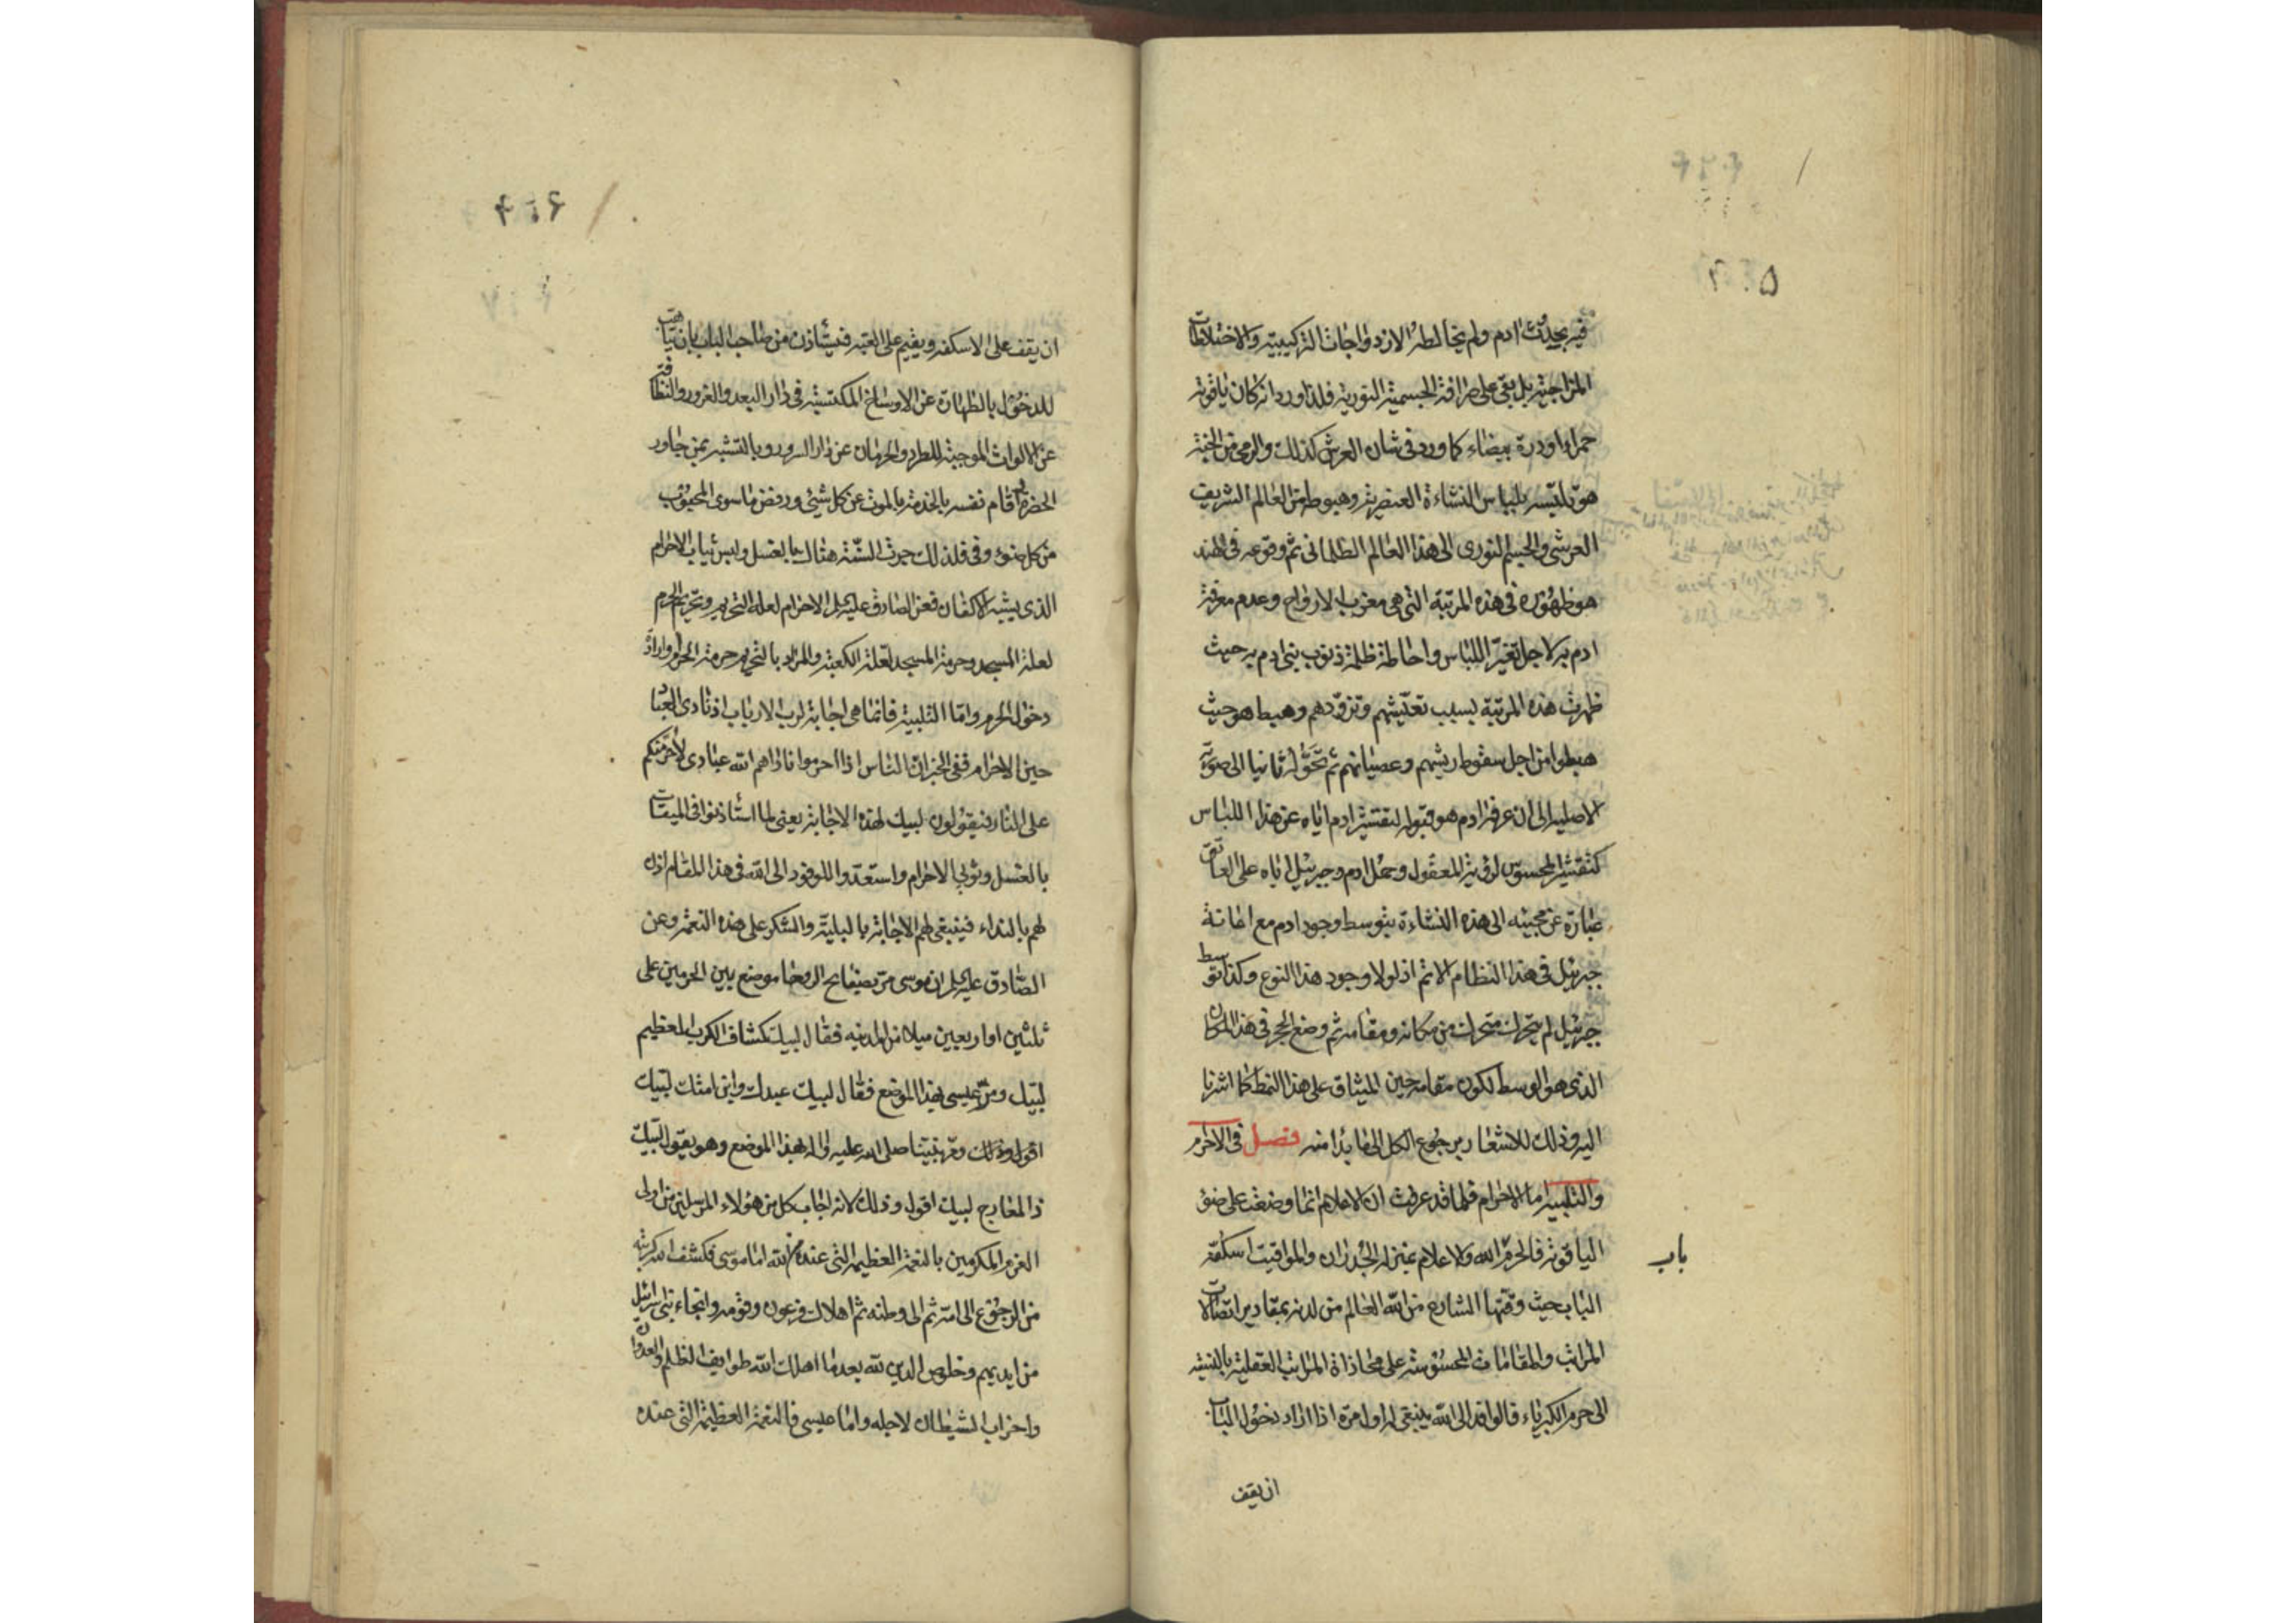 فيه بحيث ادم ولم يخالطه الازدواجات التركيبية والاختلاطات
المزاجية بل بقى على صرافة الجسمية النورية فلذا ورد انه كان ياقوتة
حمراء او درة بيضاء كما ورد فى شان العرش كذلك والرمى من الجنة
هو تلبسه بلباس النشاءة العنصرية وهبوطه من العالم الشريف
العرشى والجسم النورى الى هذا العالم الظلمانى ثم وقوعه فى الهند
هو ظهوره فى هذه المرتبة التى هى مغرب الارواح وعدم معرفة
ادم به لاجل تغير اللباس واحاطة ظلمة ذنوب بنى ادم به حيث
ظهرت هذه المرتبة بسبب تعيشهم وتزودهم وهبط هو حيث
هبطوا من اجل سقوط ريشهم وعصيانهم ثم تحوله ثانيا الى صورته
الاصلية الى ان عرفه ادم هو قبوله لتقشير ادم اياه عن هذا اللباس
كتقشير المحسوس لرؤية المعقول وحمل ادم وجبرئيل اياه على العاتق
عبارة عن مجيئه الى هذه النشاءة بتوسط وجود ادم مع اعانة
جبرئيل فى هذا النظام الاتم اذ لولا وجود هذا النوع وكذا توسط
جبرئيل لم يتحرك متحرك من مكانه ومقامه ثم وضع الحجر فى هذا المكان
الذى هو الوسط لكون مقامه حين الميثاق على هذا النمط كما اشرنا
اليه وذلك للاشعار برجوع الكل الى ما بدا منه فصل فى الاحرام
والتلبية اما الاحرام فلما قد عرفت ان الاعلام انما وضعت على ضوء
الياقوتة فالحرم الله والاعلام بمنزلة الجدران والمواقيت اسكفة
باب
الباب حيث وقتها الشارع من الله العالم من لدنه بمقادير اتصالات
المراتب والمقامات المحسوسة على محاذاة المراتب العقلية بالنسبة
الى حرم الكبرياء فالوافد الى الله ينبغى له اول مرة اذا اراد دخول الباب
ان يقف
ان يقف على الاسكفة ويقيم على العتبة فيستأذن من صاحب الباب بان يتاهب
للدخول بالطهارة عن الاوساخ المكتسبة فى دار البعد والغرور والنظافة
عن الالواث الموجبة للطرد والحرمان عن دار السرور وبالتشبه بمن جاور
الحضرة واقام نفسه بالخدمة بالموت عن كل شيئ ورفض ماسوى المحبوب
من كل ضوء وفى فلذلك جرت السنة هنالك بالغسل ولبس ثياب الاحرام
الذى يشبه الاكفان فعن الصادق عليه السلام الاحرام لعلة التحريم وتحريم الحرم
لعلة المسجد وحرمة المسجد لعلة الكعبة والمراد بالتحريم حرمة الحرم وارادة
دخول الحرم واما التلبية فانما هى اجابة لرب الارباب اذ نادى العباد
حين الاحرام ففى الخبر ان الناس اذا احرموا ناداهم الله عبادى لاحرمنكم
على النار فيقولون لبيك لهذه الاجابة يعنى لما استأذنوا فى الميقات
بالغسل وثوبى الاحرام واستعدوا للوفود الى الله فى هذا المقام اذن
لهم بالنداء فينبغى لهم الاجابة بالتلبية والشكر على هذه النعمة وعن
الصادق عليه السلام ان موسى مر بصفايح الروحا موضع بين الحرمين على
ثلثين او اربعين ميلا من المدينه فقال لبيك كشاف الكرب العظيم
لبيك ومر عيسى بهذا الموضع فقال لبيك عبدك وابن امتك لبيك
اقول وكذلك ومر نبينا صلى الله عليه واله بهذا الموضع وهو يقول لبيك
ذا المعارج لبيك اقول وذلك لانه اجاب كل من هؤلاء المرسلين من اولى
العزم المكرمين بالنعمة العظيمة التى عنده من الله اما موسى فكشف الله كربته
من الرجوع الى امه ثم الى وطنه ثم اهلاك فرعون وقومه وانجاء بنى اسرائيل
من ايديهم وخلوص الدين لله بعد ما اهلك الله طوايف الظلم والعدوان
واحزاب الشيطان لاجله واما عيسى فالنعمة العظيمة التى عنده